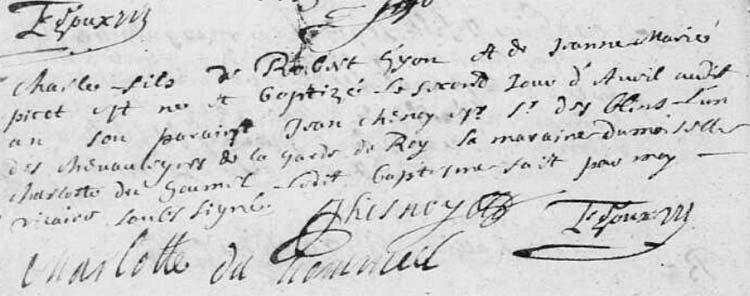 charles fils de Robert Gyon et de Jeanne Marie
picot est ne et baptizé le second Jour d'Avril audit
an son parain Jean Chesney esr. sr. des Obins l'un
des chevaulegers de la garde du Roy la maraine damoiselle
charlotte du hommel ledit baptesme fait par moy
vicaire soubs signé
Chesney
charlotte du hommeel